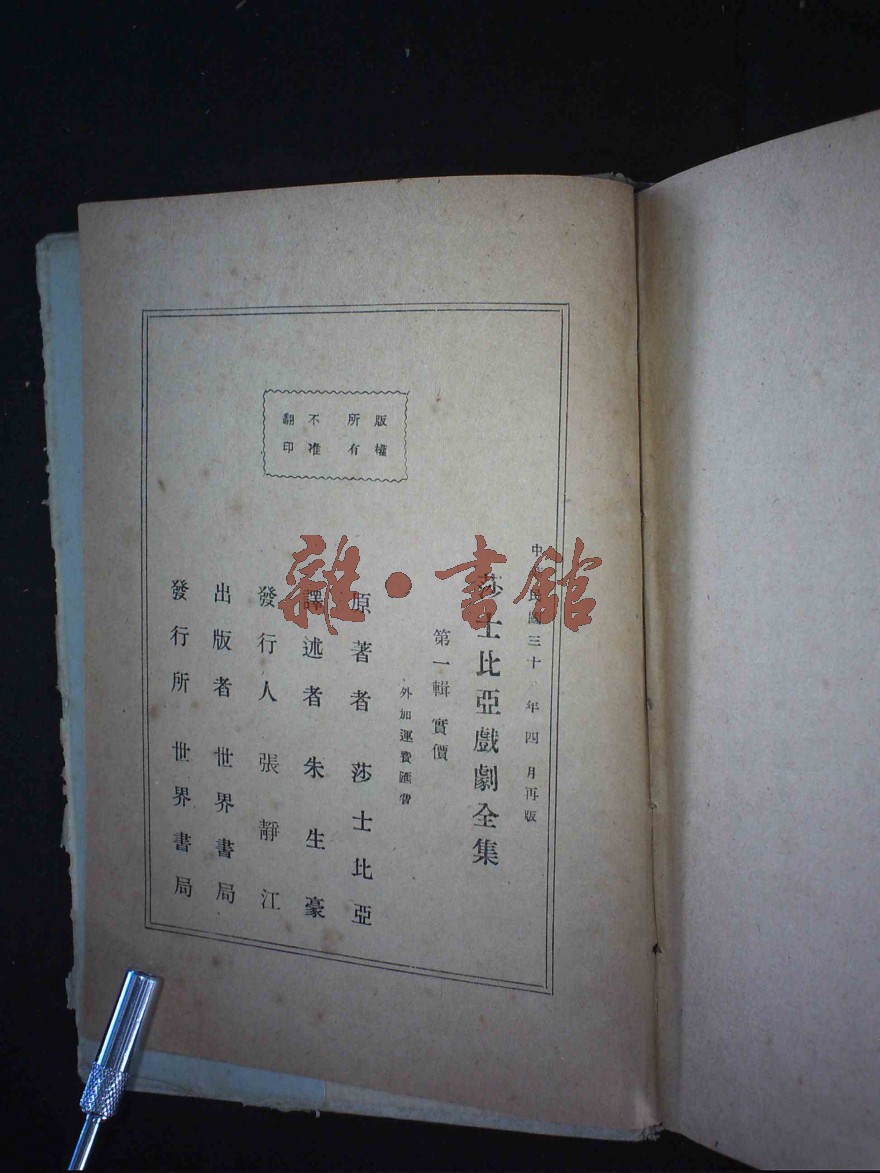 版權
所有
不准
翻印
中華民國三十 年四月再版
莎士比亞戲劇全集
第一輯實價
外加運費匯費
原著者 莎士比亞
譯述者 朱生豪
發行人 張靜江
出版者 世界書局
發行所 世界書局
雜·書館